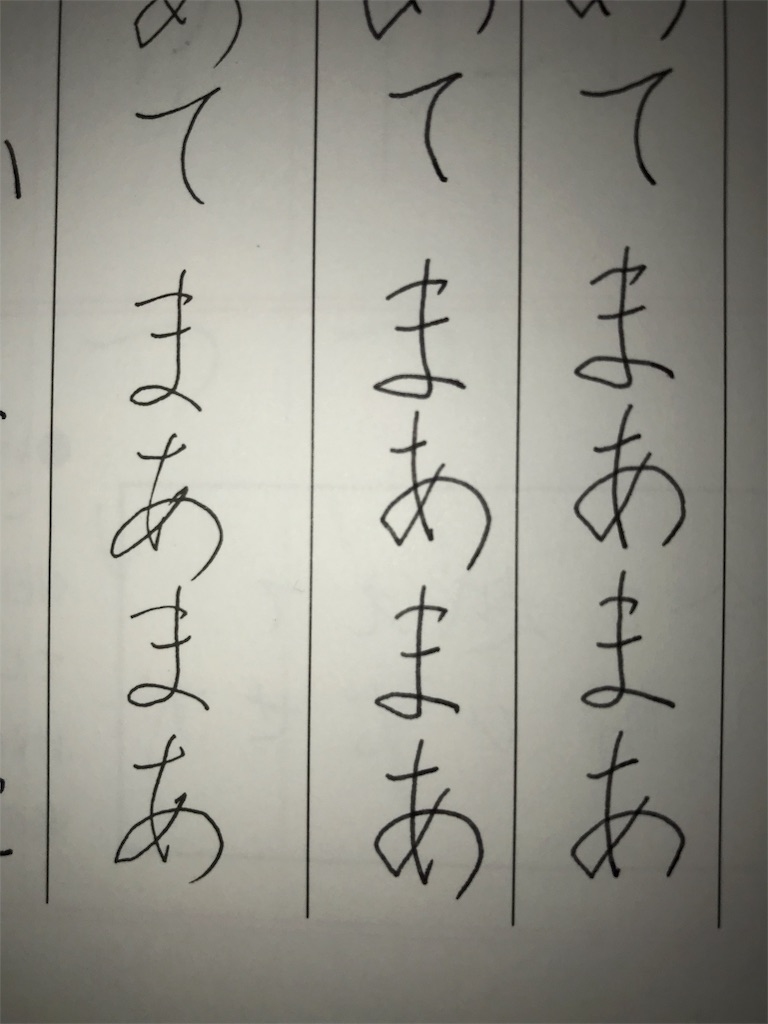 てまあまあ
てまあまあ
てまあまあ